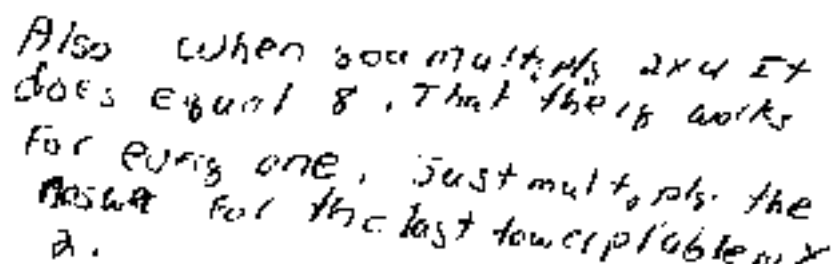 Also when you multiply 2x4 It
does equal 8. That works
for every one. Just multiply the
Answer for the last by
2.